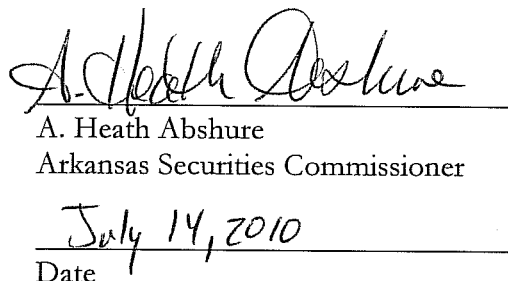 A. Heath Abshure
A. Heath Abshure
Arkansas Securities Commissioner
July 14, 2010
Date